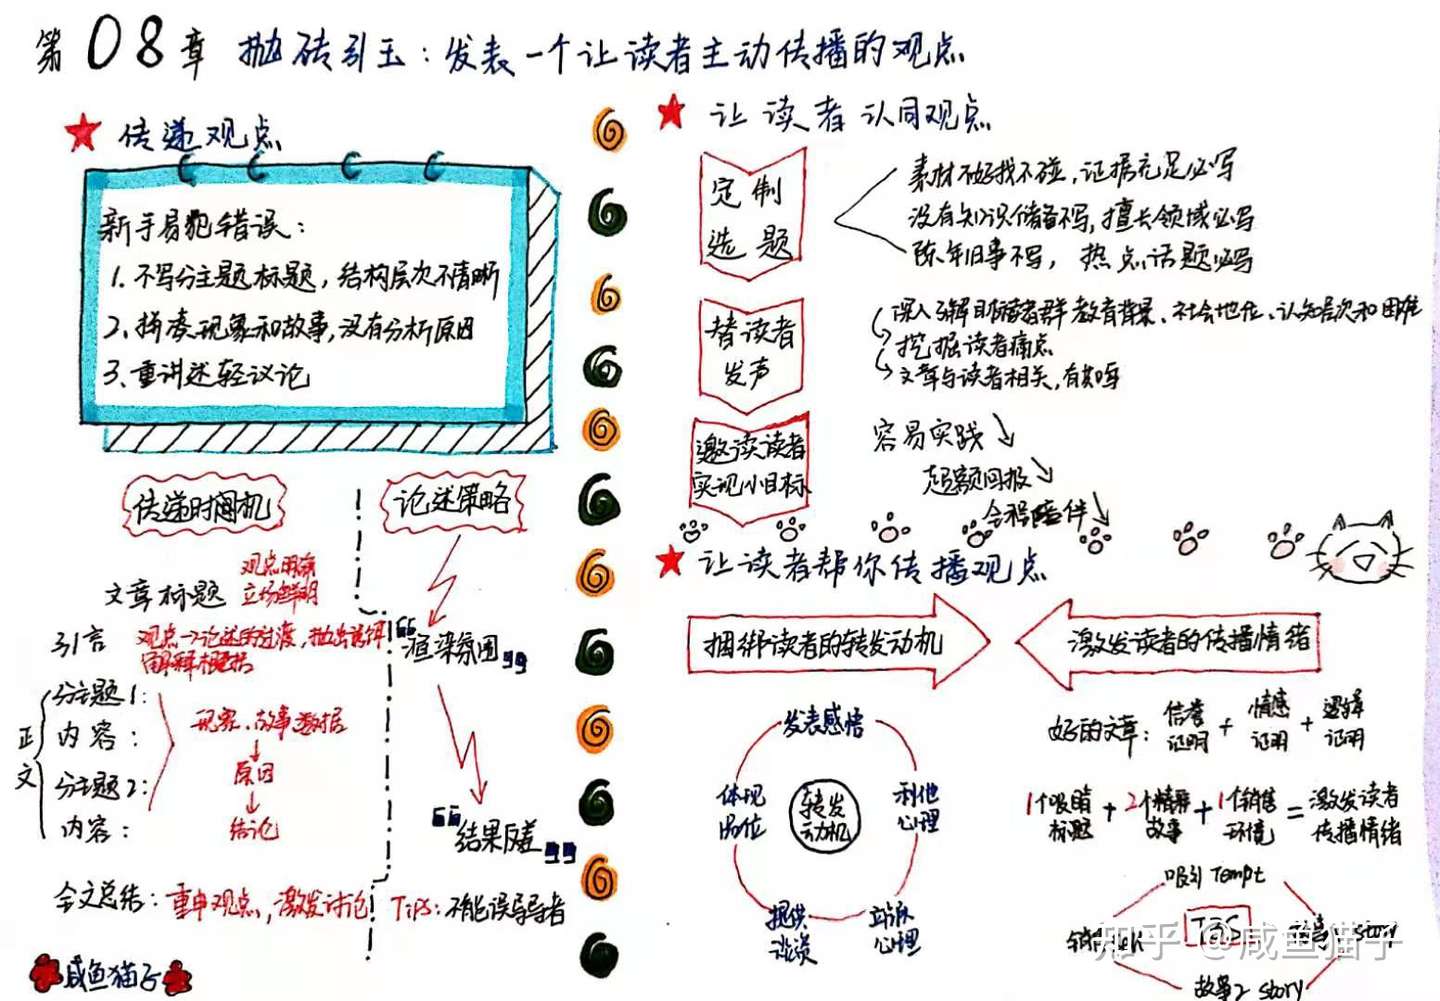 第08章 抛砖引玉：发表一个让读者主动传播的观点
传递观点
新手易犯错误：
1、不写分主题标题，结构层次不清晰
2、拼凑现象和故事，没有分析原因
3、重讲述轻议论
传递时间机
论述策略
文章标题
观点明确
立场鲜明
引言
观点→论述的过渡，抛出
正文
分主题1：
内容：
分主题2：
内容：
现象、故事、数据
原因
结论
全文总结：重申观点，激发讨论
渲染氛围
结果反差
Tips：不能误导读者
咸鱼猫子
让读者认同观点
定制
选题
素材不好找不碰，证据充足必写
没有知识储备不写，擅长领域必写
陈年旧事不写，热点话题必写
替读者
发声
深入了解目标读者群教育背景、社会地位、认知层次和困难
挖掘读者痛点
文章与读者相关，有共鸣
邀请读者
实现小目标
容易实践
超额回报
全程陪伴
让读者帮你传播观点
捆绑读者的转发动机
激发读者的传播情绪
发表感悟
体现
品位
利他
心理
转发
动机
提供
谈资
立派
心理
好的文章：信誉证明+情感证明+逻辑证明
1个吸睛标题+2个精彩故事+1个销售环境=激发读者传播情绪
吸引 Tempt
story
故事2 story
知乎 @咸鱼猫子